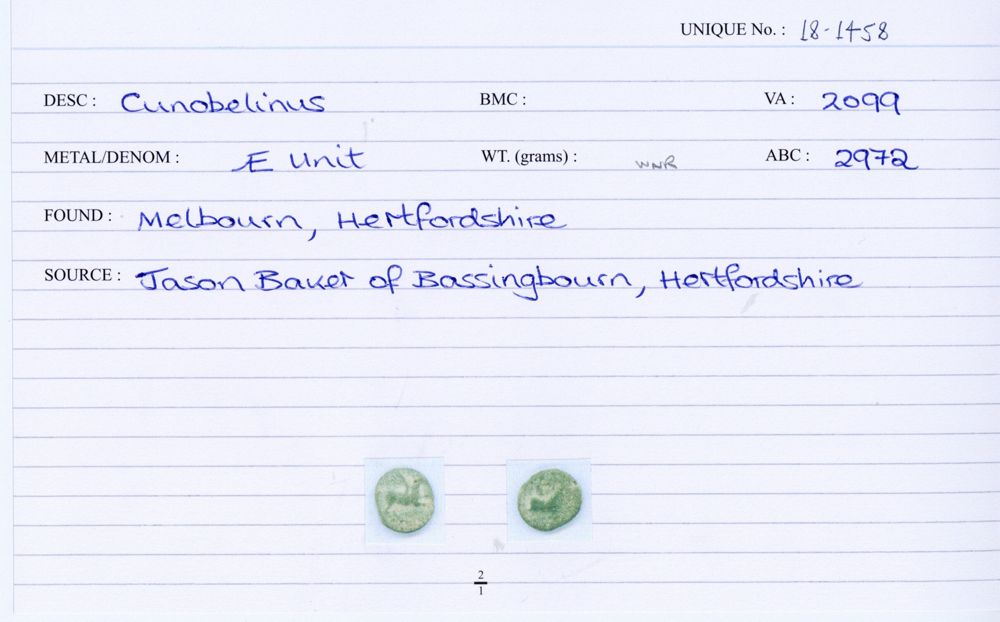 UNIQUE No. : 18-1458
DESC : Cunobelinus BMC : VA : 2099
METAL/DENOM : Æ Unit WT. (grams) : WNR ABC : 2972
FOUND : Melbourn, Hertfordshire
SOURCE : Jason Baker of Bassingbourn, Hertfordshire
2
1